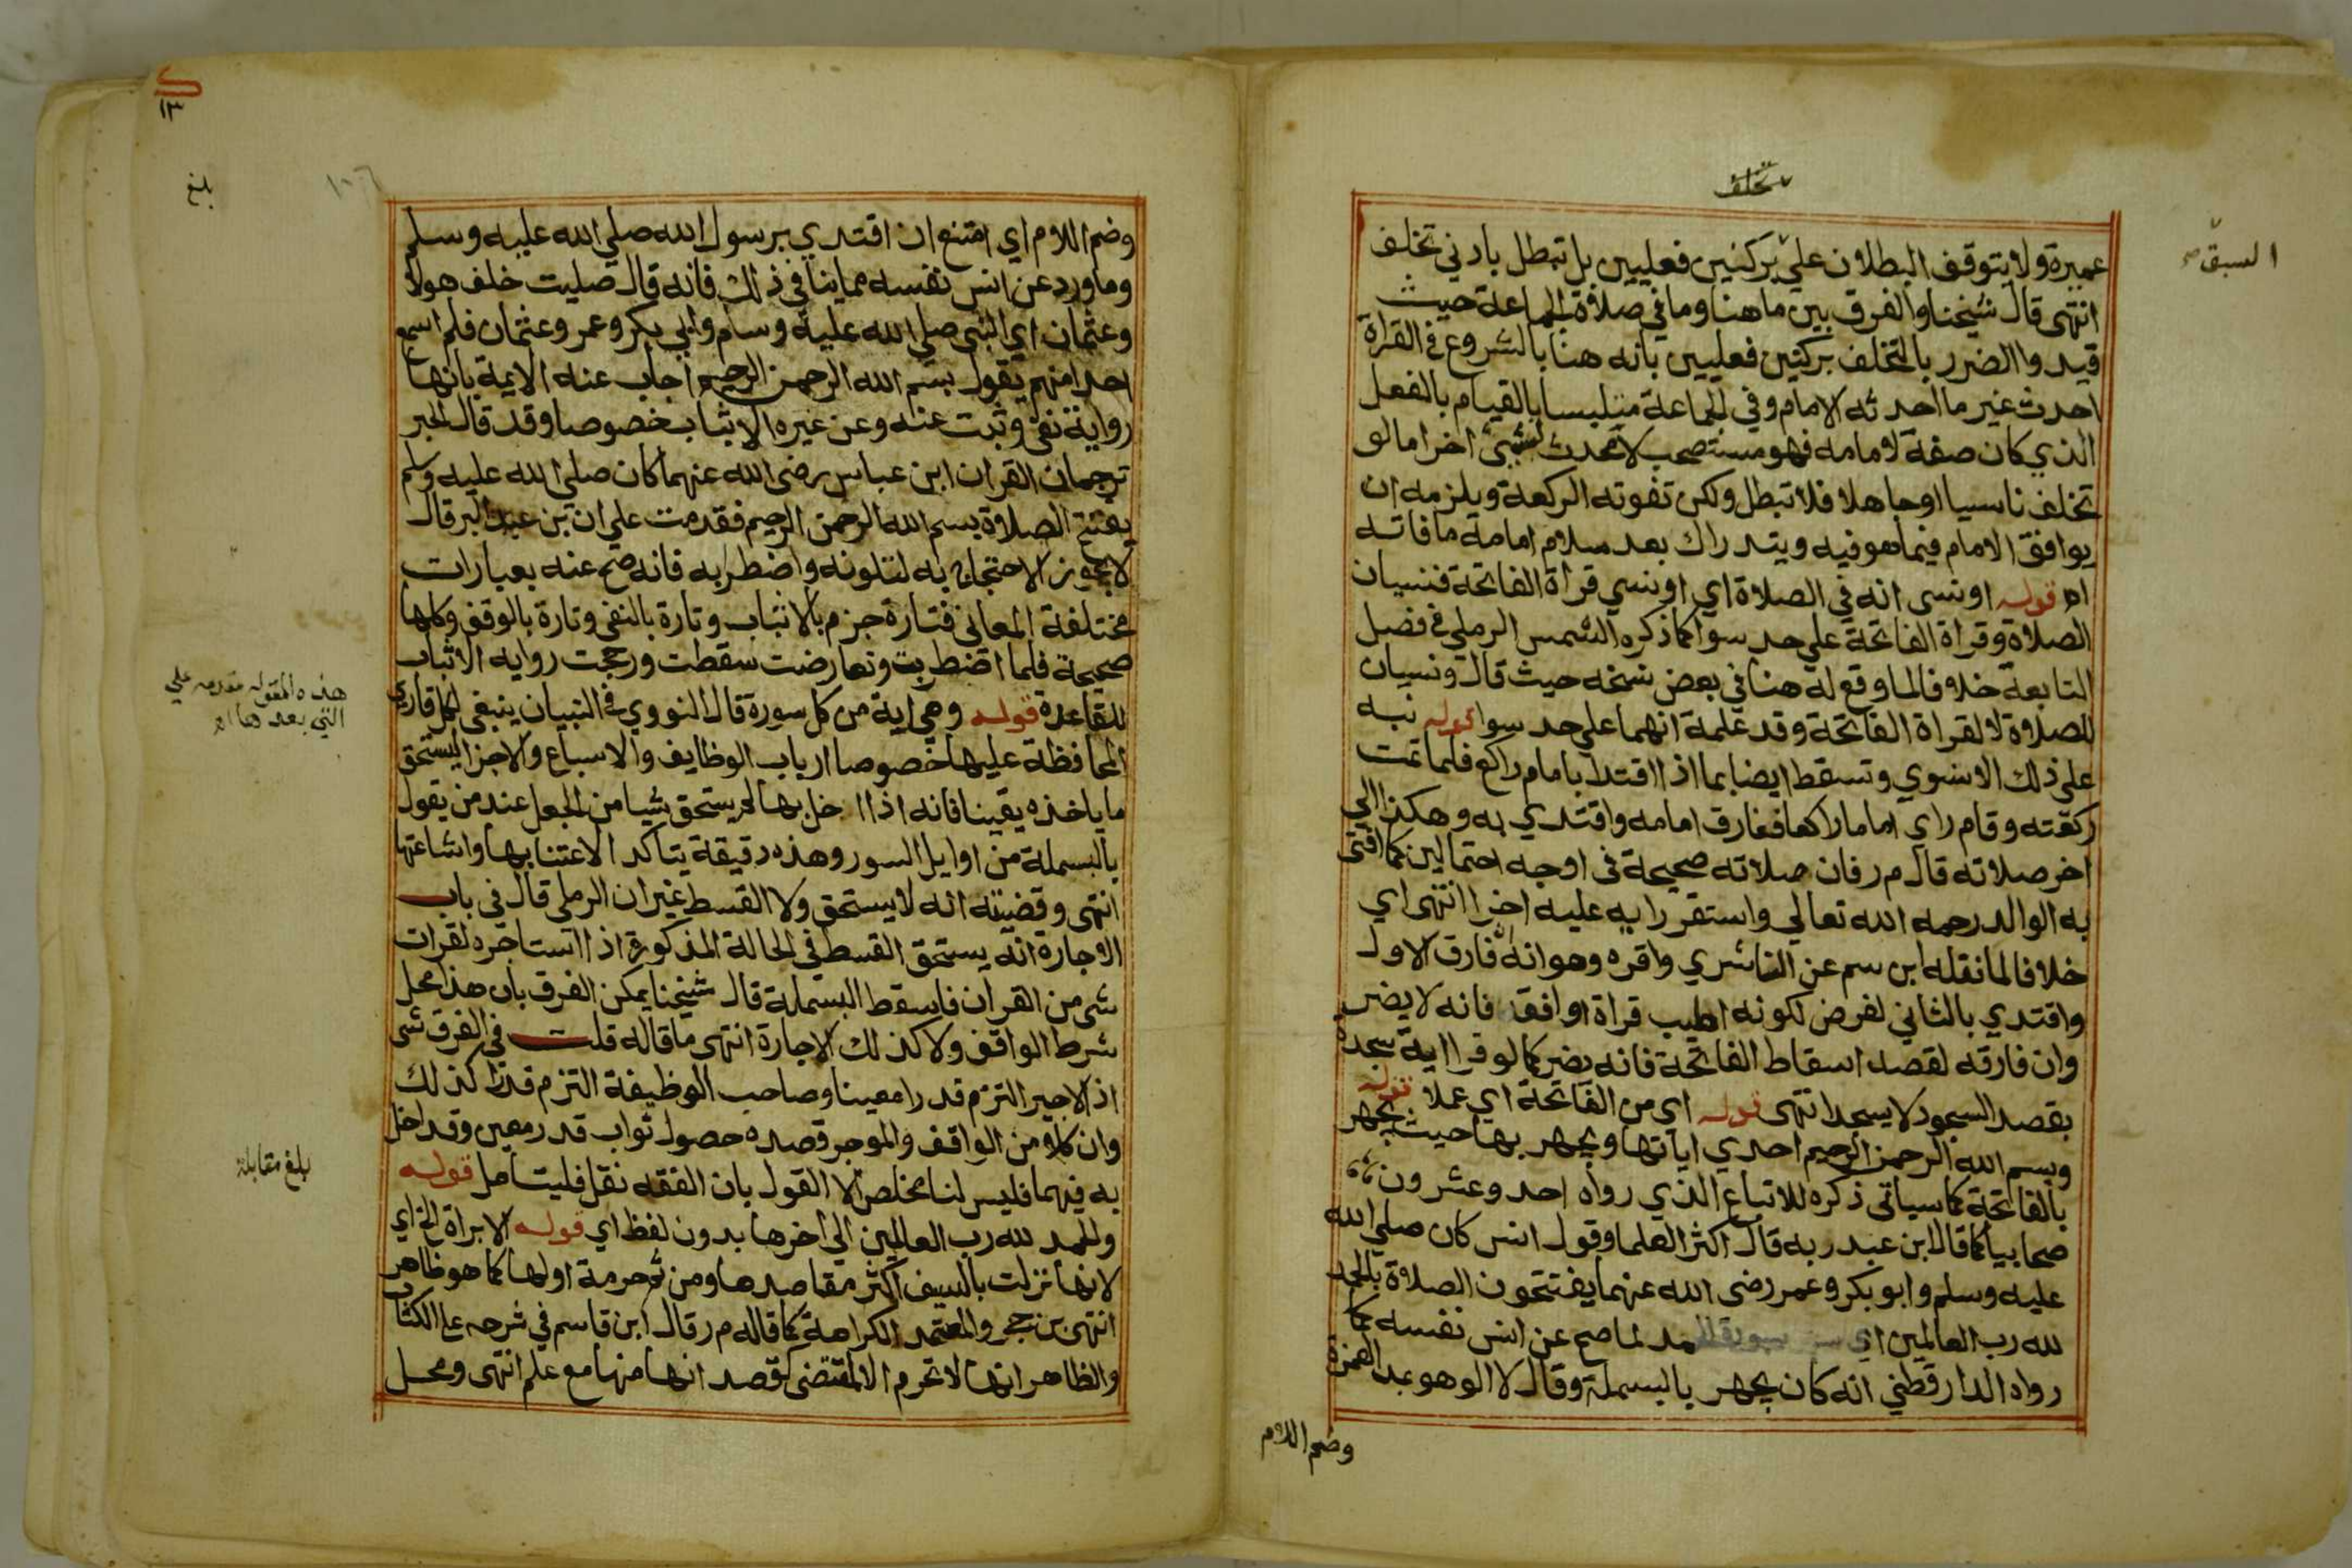 تخلف
السبق صح
عميرة ولا يتوقف البطلان علي بركنين فعليين بل تبطل بادني تخلف
انتهى قال شيخنا والفرق بين ما هنا وما في صلاة الجماعة حيث
قيدوا الضرر بالتخلف بركنين فعليين بانه هنا بالشروع في القراة
احدث غير ما احدثه الامام وفي الجماعة متلبسا بالقيام بالفعل
الذي كان صفة لامامه فهو مستصحب لا محدث لشيئ اخر اما لو
تخلف ناسيا او جاهلا فلا تبطل ولكن تفوته الركعة ويلزمه ان
يوافق الامام فيما هو فيه ويتدراك بعد سلام امامه ما فاته
اه قوله او نسى انه في الصلاة اي او نسي قراة الفاتحة فنسيان
الصلاة وقراة الفاتحة علي حد سوا كما ذكره الشمس الرملي في فصل
التابعة خلافا لما وقع له هنا في بعض نسخه حيث قال ونسيان
للصلاة لا لقراة الفاتحة وقد علمة انهما علي حد سوا قوله نبه
على ذلك الاسنوي وتسقط ايضا بما اذا اقتدا بامام راكع فلما تمت
ركعته وقام راي اماما راكعا ففارق امامه واقتدي به وهكذا الي
اخر صلاته قال م ر فان صلاته صحيحة في اوجه احتمالين كما افتى
به الوالد رحمه الله تعالي واستقر رايه عليه اخرا انتهى اي
خلافا لما نقله ابن سم عن الناشري واقره وهو انه فارق الاول
واقتدي بالثاني لغرض لكونه اطيب قراة او افقه فانه لا يضر
وان فارقه لقصد اسقاط الفاتحة فانه يضر كما لو قرا اية سجدة
بقصد السجود لا يسجد انتهى قوله اي من الفاتحة اي عملا قوله
وبسم الله الرحمن الرحيم احدي اياتها ويجهر بها حيث يجهر
بالفاتحة كما سياتى ذكره للاتباع الذي رواه احد وعشرون
صحابيا كما قال ابن عبد ربه قال اكثر العلما وقول انس كان صلي الله
عليه وسلم وابو بكر وعمر رضى الله عنهما يفتتحون الصلاة بالحمد
لله رب العالمين اي مد لما صح عن انس نفسه كما
رواه الدارقطني انه كان يجهر بالبسملة وقال لا الو هو بمد الهمزة
وضم اللام
١٣
١٠٦
بلغ
وضم اللام اي امتنع ان اقتدي برسول الله صلي الله عليه وسلم
وما ورد عن انس نفسه مما ينافي ذلك فانه قال صليت خلف هولا
وعثمان اي النبي صلي الله عليه وسلم وابي بكر وعمر وعثمان فلم اسمع
احدا منهم يقول بسم الله الرحمن الرحيم اجاب عنه الايمة بانها
رواية نفى وثبت عنه وعن غيره الاثبات خصوصا وقد قال الحبر
ترجمان القران ابن عباس رضى الله عنهما كان صلي الله عليه وسلم
يفتتح الصلاة بسم الله الرحمن الرحيم فقدمت علي ان بن عبد البر قال
لا يجوز الاحتجاج به لتلونه واضطرابه فانه صح عنه بعبارات
مختلفة المعاني فتارة جزم بالاثبات وتارة بالنفى وتارة بالوقف وكلها
صحيحة فلما اضطربت وتعارضت سقطت ورجحت رواية الاثبات
للقاعدة قوله وهي اية من كل سورة قال النووي في التبيان ينبغى لكل قاري
المحافظة عليها خصوصا ارباب الوظايف والاسباع والاجزا ليستحق
ما ياخذه يقينا فانه اذا اخل بها لم يستحق شيا من الجعل عند من يقول
بالبسملة من اوايل السور وهذه دقيقة يتاكد الاعتنا بها واشاعتها
انتهى وقضيته انه لا يستحق ولا القسط غير ان الرملي قال في باب
الاجارة انه يستحق القسط في الحالة المذكورة اذا استاجره لقرات
شي من القران فاسقط البسملة قال شيخنا يمكن الفرق بان هذا محل
شرط الواقف ولا كذلك الاجارة انتهى ما قاله قلت في الفرق شي
اذ الاجير التزم قدرا معينا وصاحب الوظيفة التزم قدرا كذلك
وان كلا من الواقف والموجر قصده حصول ثواب قدر معين وقد اخل
به فيهما فليس لنا مخلص الا القول بان الفقه نقل فليتامل قوله
والحمد لله رب العالمين الي اخرها بدون لفظ اي قوله الا براة الخ اي
لانها نزلت بالسيف اكثر مقاصدها ومن ثم حرمة اولها كما هو ظاهر
انتهى بن حجر والمعتمد الكراهة كما قاله م ر قال ابن قاسم في شرحه علي الكتاب
والظاهر انها لا تحرم الا لمقتضى كقصد انها منها مع علم انتهى ومحل
هذه المقوله مقدمه علي
التي بعدها اه
بلغ مقابلة